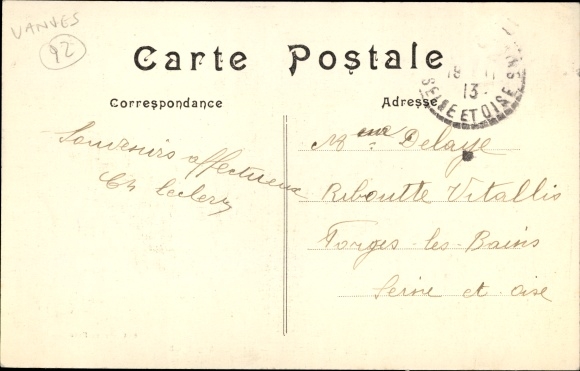 VANVES
92
Carte Postale
Correspondance
Adresse
19 11
13
SEINE ET OISE
Souvenirs affectueux
Ch Leclerc
Mme Delaye
Riboutte Vitallis
Forges-les-Bains
Seine et oise